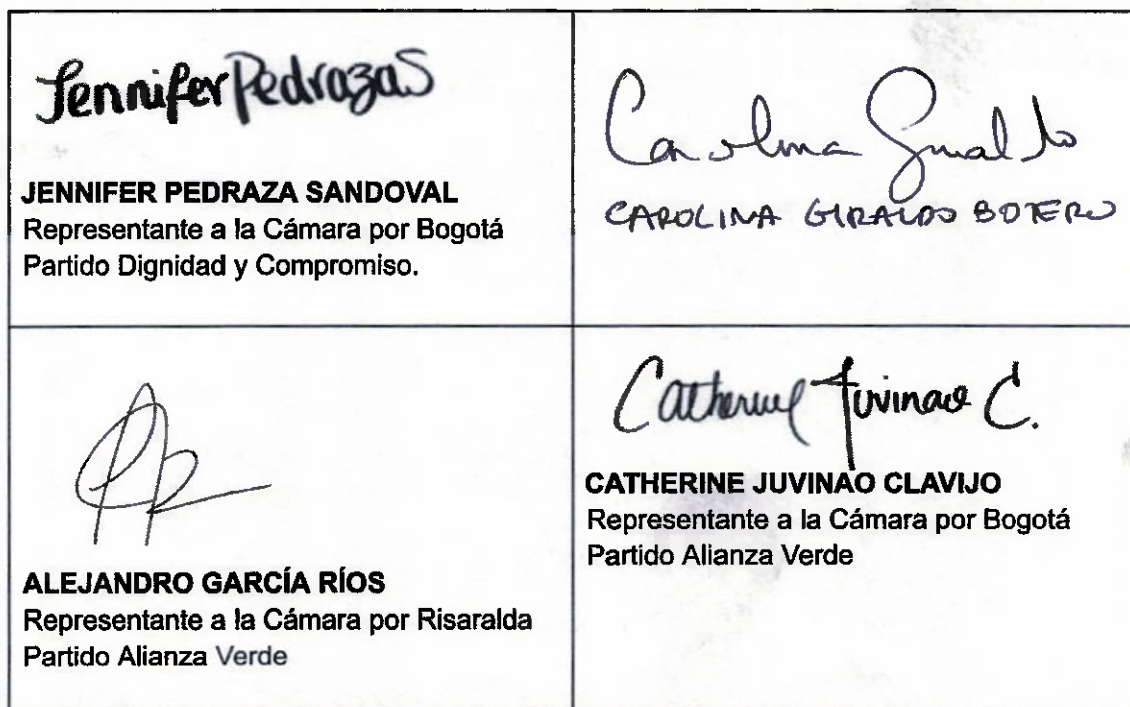 Jennifer PedrazaS
JENNIFER PEDRAZA SANDOVAL
Representante a la Cámara por Bogotá
Partido Dignidad y Compromiso.
Carolina Giraldo
CAROLINA GIRALDO BOTERO
ALEJANDRO GARCÍA RÍOS
Representante a la Cámara por Risaralda
Partido Alianza Verde
Catherine Juvinao C.
CATHERINE JUVINAO CLAVIJO
Representante a la Cámara por Bogotá
Partido Alianza Verde